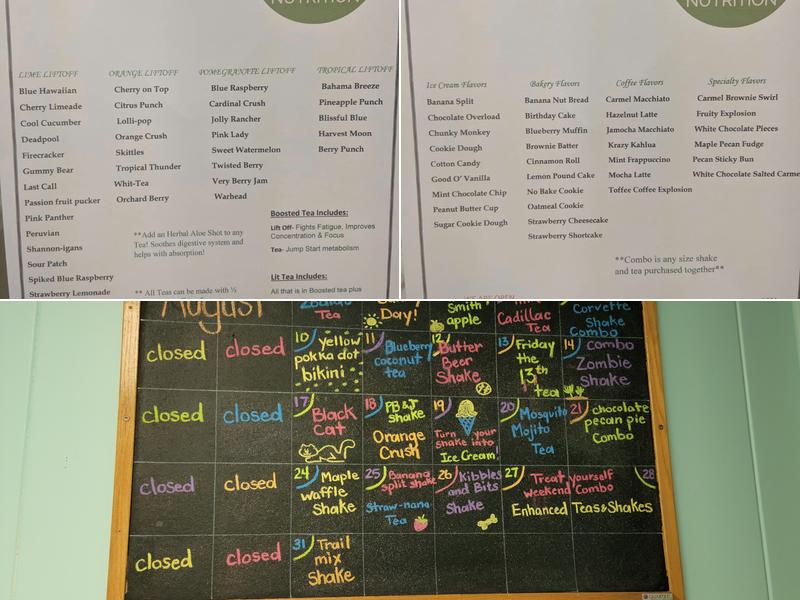 NUTRITION
LIME LIFTOFF
Blue Hawaiian
Cherry Limeade
Cool Cucumber
Deadpool
Firecracker
Gummy Bear
Last Call
Passion fruit pucker
Pink Panther
Peruvian
Shannon-igans
Sour Patch
Spiked Blue Raspberry
Strawberry Lemonade
ORANGE LIFTOFF
Cherry on Top
Citrus Punch
Lolli-pop
Orange Crush
Skittles
Tropical Thunder
Whit-Tea
Orchard Berry
**Add an Herbal Aloe Shot to any
Tea! Soothes digestive system and
helps with absorption!
** All Teas can be made with ½
POMEGRANATE LIFTOFF
Blue Raspberry
Cardinal Crush
Jolly Rancher
Pink Lady
Sweet Watermelon
Twisted Berry
Very Berry Jam
Warhead
TROPICAL LIFTOFF
Bahama Breeze
Pineapple Punch
Blissful Blue
Harvest Moon
Berry Punch
Boosted Tea Includes:
Lift Off- Fights Fatigue, Improves
Concentration & Focus
Tea- Jump Start metabolism
Lit Tea Includes:
All that is in Boosted tea plus
NUTRITION
Ice Cream Flavors
Banana Split
Chocolate Overload
Chunky Monkey
Cookie Dough
Cotton Candy
Good O' Vanilla
Mint Chocolate Chip
Peanut Butter Cup
Sugar Cookie Dough
Bakery Flavors
Banana Nut Bread
Birthday Cake
Blueberry Muffin
Brownie Batter
Cinnamon Roll
Lemon Pound Cake
No Bake Cookie
Oatmeal Cookie
Strawberry Cheesecake
Strawberry Shortcake
Coffee Flavors
Carmel Macchiato
Hazelnut Latte
Jamocha Macchiato
Krazy Kahlua
Mint Frappuccino
Mocha Latte
Toffee Coffee Explosion
Specialty Flavors
Carmel Brownie Swirl
Fruity Explosion
White Chocolate Pieces
Maple Pecan Fudge
Pecan Sticky Bun
White Chocolate Salted Carme
**Combo is any size shake
and tea purchased together**
WE ARE OPEN
August
Zodiac
Tea
Day!
Smith
apple
Cadillac
Tea
Corvette
Shake
Combo
closed
closed
10 yellow
polka dot
bikini
11 Blueberry
coconut
tea
12 Butter
Beer
Shake
13 Friday
the
13th
tea
14 combo
Zombie
Shake
closed
closed
17 Black
Cat
18 PB&J
Shake
Orange
Crush
19
Turn your
shake into
Ice Cream!
20 Mosquito
Mojito
Tea
21 chocolate
pecan pie
Combo
closed
closed
24 Maple
waffle
Shake
25 Banana
split shake
Straw-nana
Tea
26 Kibbles
and Bits
Shake
27 Treat yourself 28
weekend Combo
Enhanced Teas & Shakes
closed
closed
31 Trail
mix
Shake